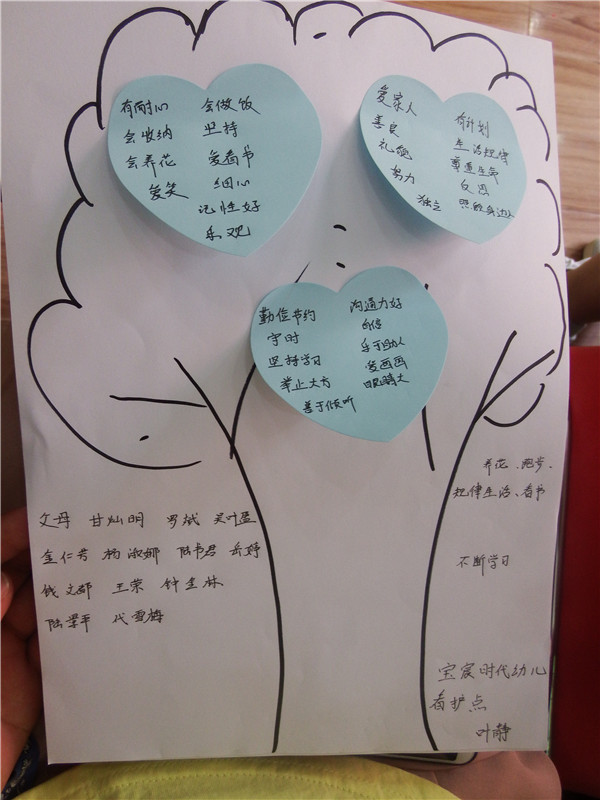 有耐心 会做饭
会收纳 坚持
会养花 爱看书
爱笑 细心
记性好
乐观
爱家人 有计划
善良 生活规律
礼貌 尊重生命
努力 反思
独立 照顾身边人
勤俭节约 沟通力好
守时 自信
坚持学习 乐于助人
举止大方 爱画画
善于倾听 眼睛大
养花、跑步、
规律生活、看书
不断学习
父母 甘灿明 罗斌 吴叶盈
金仁芳 杨淑娜 陆书君 岳婷
钱文郡 王荣 钟圭林
陆翠平 代雪梅
宝宸时代幼儿
看护点
叶静